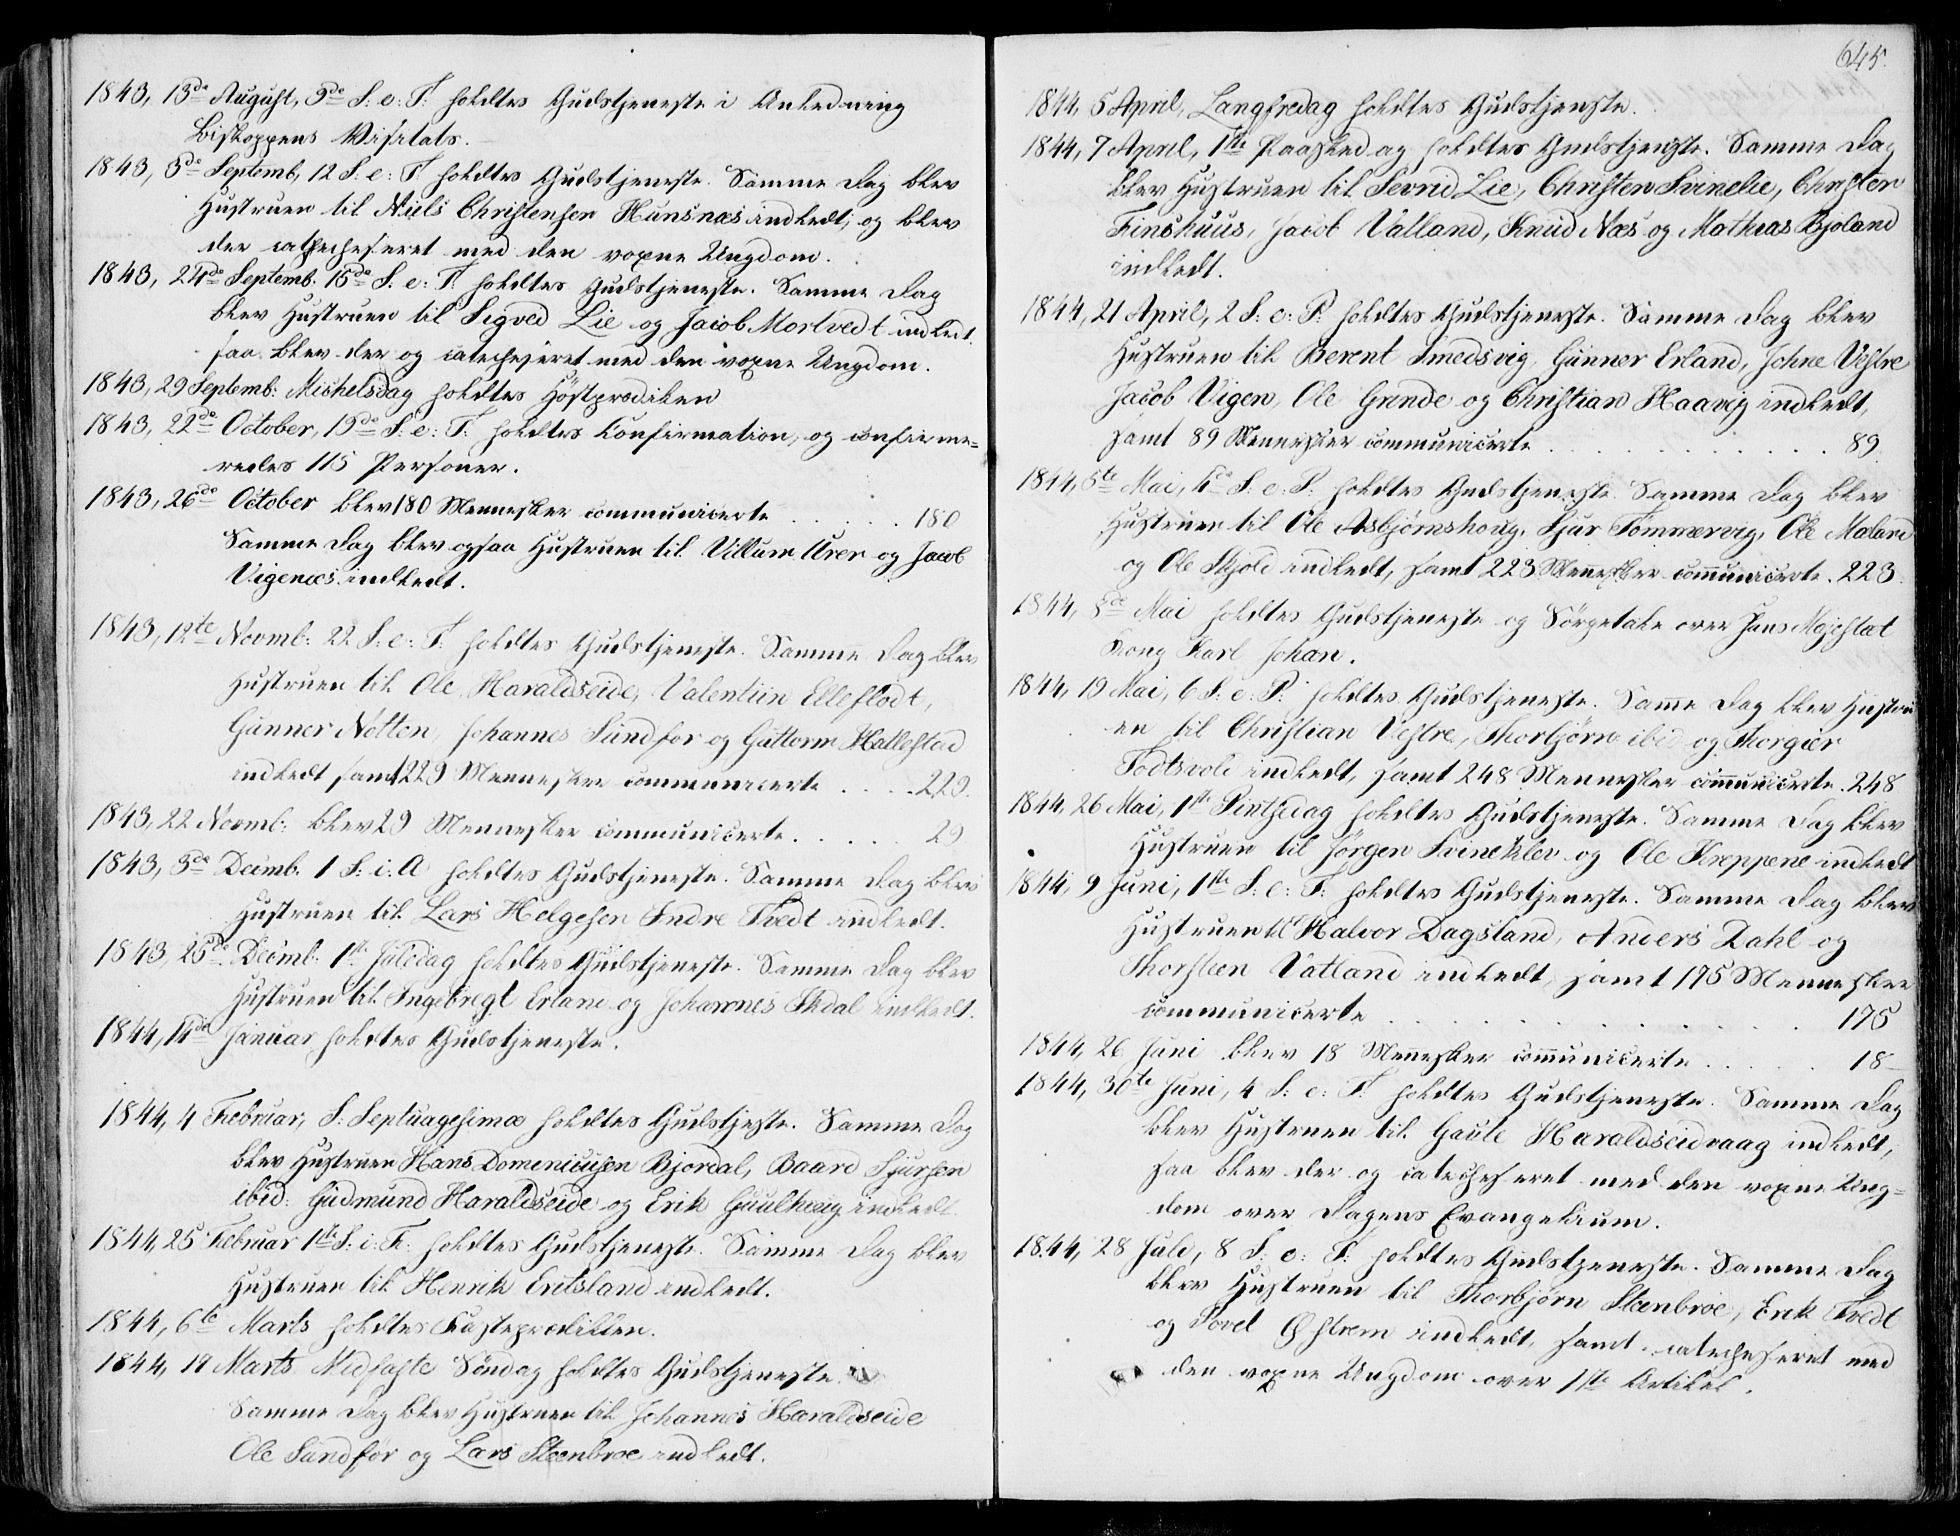 1843, 13de August, 9de S: e: T: holdtes Gudstjeneste i Anledning
Biskoppens Visitats.
1843, 3de Septemb, 12 S: e: T. holdtes Gudstjeneste. Samme Dag blev
Hustruen til Niels Christensen Hunsnæs indledt, og blev
der catecheseret med den voxne Ungdom.
1843, 24de Septemb. 15de S: e: T. holdtes Gudstjeneste. Samme Dag
blev Hustruen til Sigved Lie og Jacob Mortvedt indledt,
saa blev der og catecheseret med den voxne Ungdom.
1843, 29 Septemb: Michelsdag holdtes Höstprædiken
1843, 22de October, 19de S: e: T: holdtes Confirmation, og confirme=
redes 115 Personer.
1843, 26de October blev 180 Mennesker communicerte . . . . . 180
Samme Dag blev ogsaa Hustruen til Villum Urer og Jacob
Vigenæs indledt.
1843, 12te Novmb: 22 S: e: T. holdtes Gudstjeneste. Samme Dag blev
Hustruen til Ole Haraldseide, Valentiin Elleflodt,
Gunner Nolten, Johannes Sundfor og Guttorm Hallestad
indledt samt 229 Mennesker communicerte . . . . 229.
1843, 22 Novmb: blev 29 Mennesker communicerte. . . . . . 29
1843, 3de Decmb. 1 S: i: A holdtes Gudstjeneste. Samme Dag blev
Hustruen til Lars Helgesen Indre Tvedt indledt.
1843, 25de Decmb: 1ste Juledag holdtes Gudstjeneste. Samme Dag blev
Hustruen til Ingebregt Erland og Johannes Ihdal indledt.
1844, 14de Januar holdtes Gudstjeneste.
1844, 4 Februar, S: Septuagesimæ holdtes Gudstjeste. Samme Dag
blev Hustruen Hans Domenicusen Bjordal, Baard Sjursen
ibid: Gudmund Haraldseide og Erik indledt
1844, 25 Februar 1ste S: i: F: holdtes Gudstjeneste. Samme Dag blev
Hustruen til Henrik Eritsland indledt.
1844, 6te Marts holdtes Fasteprædiken.
1844, 17 Marts Midfaste Söndag holdtes Gudstjeneste.
Samme Dag blev Hustruen til Johannes Haraldseide
Ole Sundfør og Lars Steenbroe indledt.
645.
1844, 5 April, Langfredag holdtes Gudstjenste.
1844, 7 April, 1ste Paaskedag holdtes Gudstjenste. Samme Dag
blev Hustruen til Sevrid Lie, Christen Svinelie, Christen
Finskuus, Jacob Valland, Knud Næs og Mathias Bjoland
indledt.
1844, 21 April, 2 S: e: P: holdtes Gudstjeneste. Samme Dag blev
Hustruen til Berent Smedsvig, Gunner Erland, Johne Vestre
Jacob Vigen, Ole Grinde og Christian Haavig indledt,
samt 89 Mennesker communicerte . . . . . . . . . . . . 89.
1844, 5te Mai, 4de S: e: P: holdtes Gudstjeneste. Samme Dag blev
Hustruen til Ole Asbjørnshoug, Sjur Tømmervig, Ole Mæland
og Ole Skjold indledt, samt 223 Mennesker communicerte. 223.
1844, 8de Mai holdtes Gudstjeneste og Sörgetale over Hans Majestæt
Kong Karl Johan.
1844, 19 Mai, 6 S: e: P: holdtes Gudstjeneste. Samme Dag blev Hustru
en til Christian Vestre, Thorbjørn ibid og Thorgier
Todtsvold indledt, samt 248 Mennesker communicerte. 248
1844, 26 Mai, 1ste Pintsedag holdtes Gudstjeneste. Samme Dag blev
Hustruen til Jörgen Svineklev og Ole Kreppene indledt
1844, 9 Juni, 1ste S: e: T: holdtes Gudstjeneste. Samme Dag blev
Hustruen til Halvor Dagsland, Anders Dahl og
Thorsteen Vatland indledt, samt 175 Mennesker
communicerte . . . . . . . . . . . . 175
1844, 26 Juni blev 18 Mennesker communicerte . . . . . . 18
1844, 30te Juni, 4 S: e: T. holdtes Gudstjeneste. Samme Dag
blev Hustruen til Gaute Haraldseidvaag indledt,
saa blev der og catecheseret med den voxne Ung=
dom over Dagens Evangelium.
1844, 28 Juli, 8 S: e: T: holdtes Gudstjeneste. Samme Dag
blev Hustruen til Thorbjørn Steenbroe, Erik Tvedt
og Povel Østrem indledt, samt catecheseret med
den voxne Ungdom over 1ste Artikel.